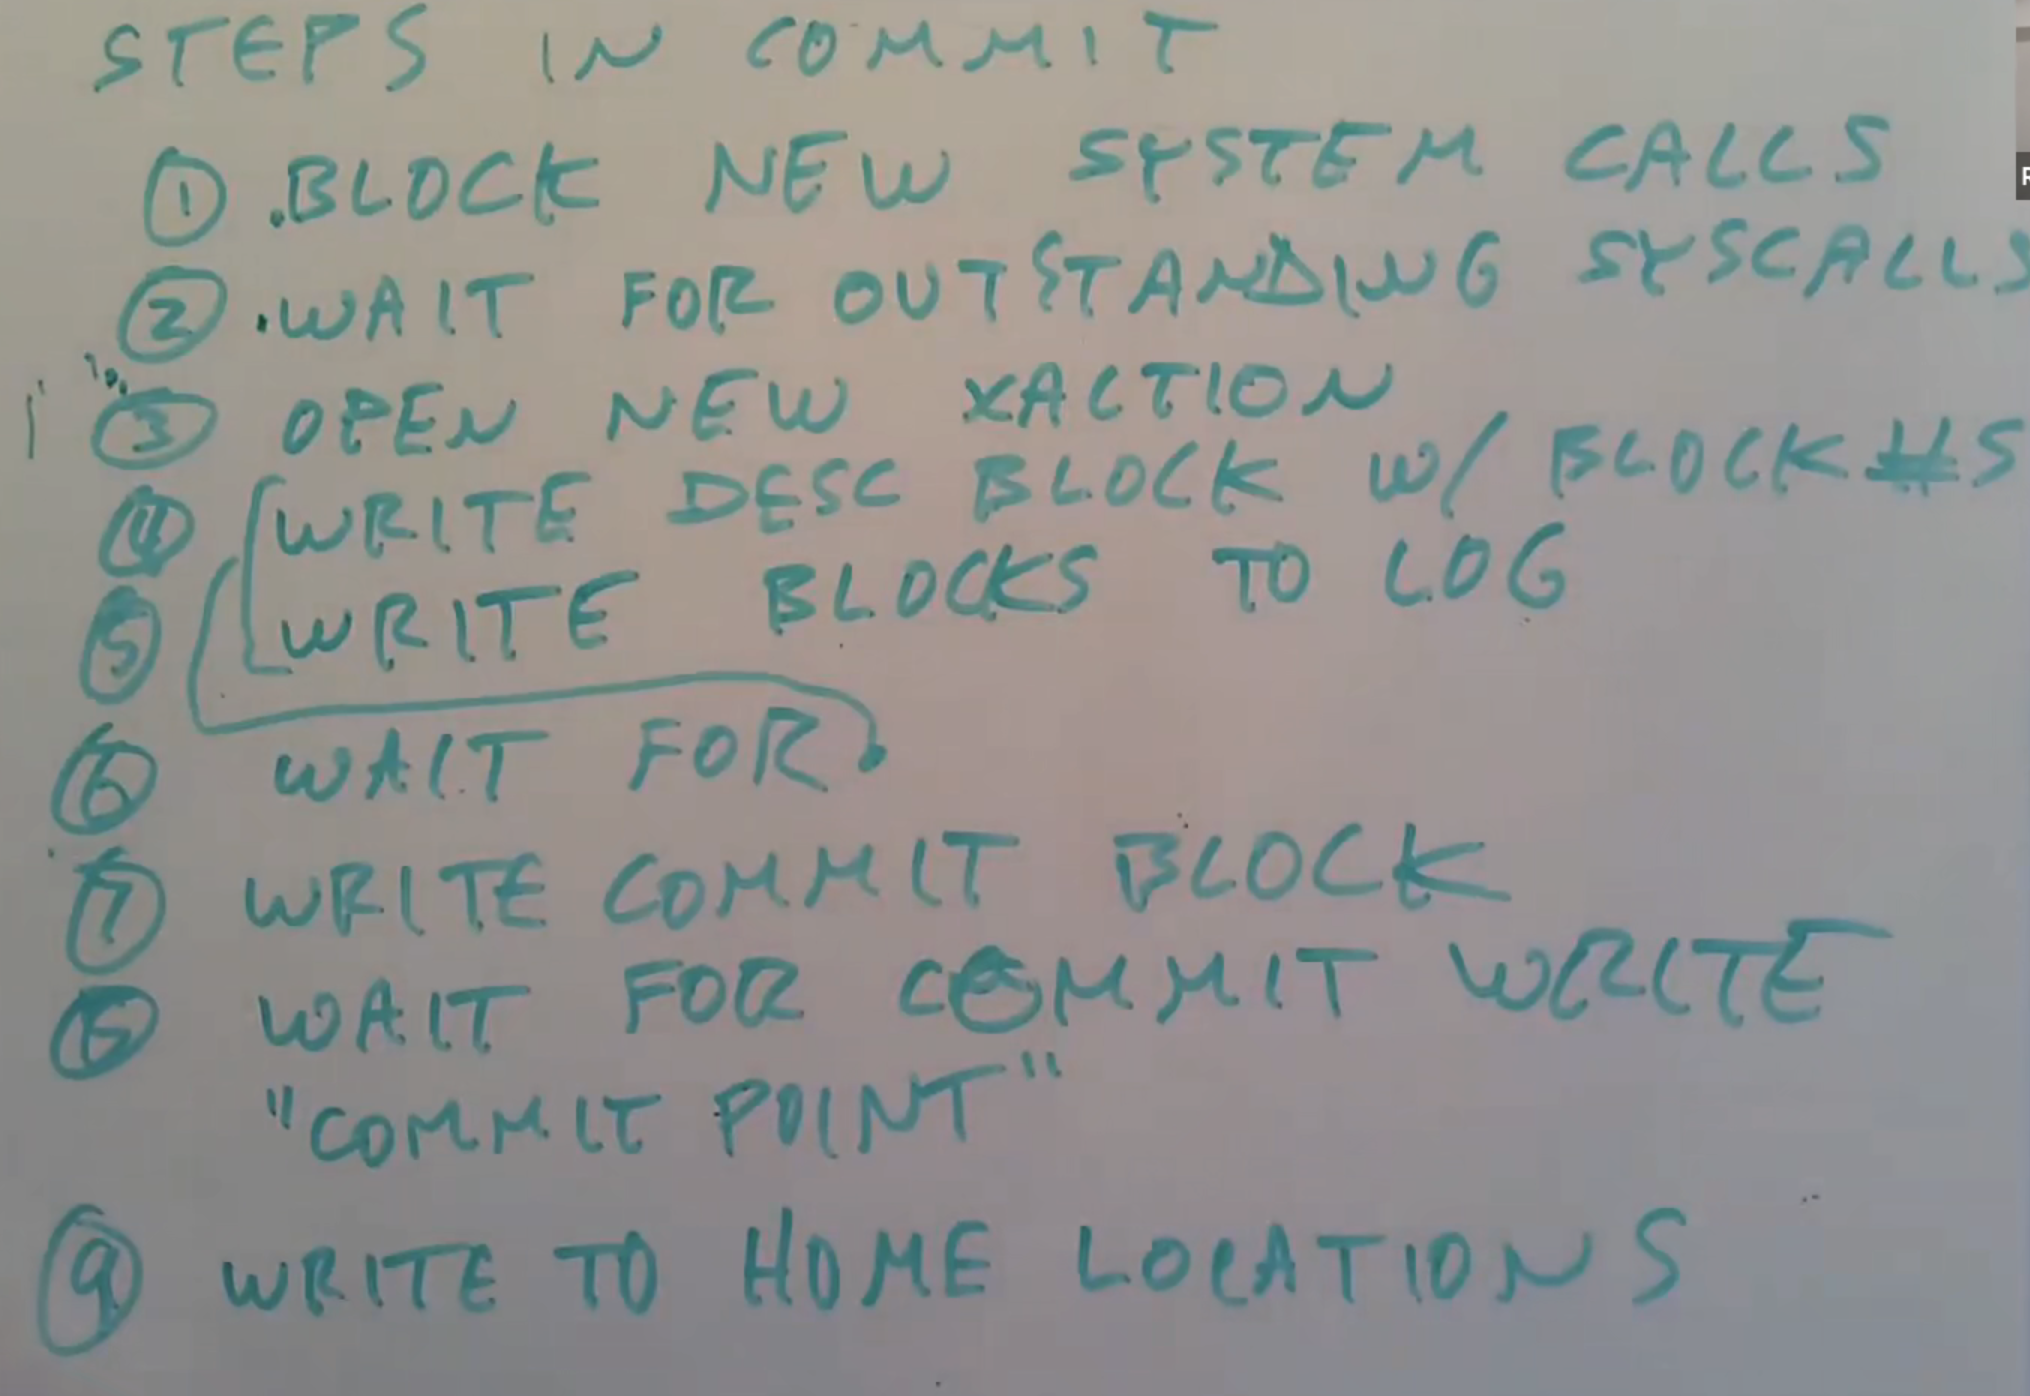 STEPS IN COMMIT
① .BLOCK NEW SYSTEM CALLS
② .WAIT FOR OUTSTANDING SYSCALLS
③ OPEN NEW XACTION
④ WRITE DESC BLOCK W/ BLOCK #S
⑤ WRITE BLOCKS TO LOG
⑥ WAIT FOR
⑦ WRITE COMMIT BLOCK
⑧ WAIT FOR COMMIT WRITE
"COMMIT POINT"
⑨ WRITE TO HOME LOCATIONS